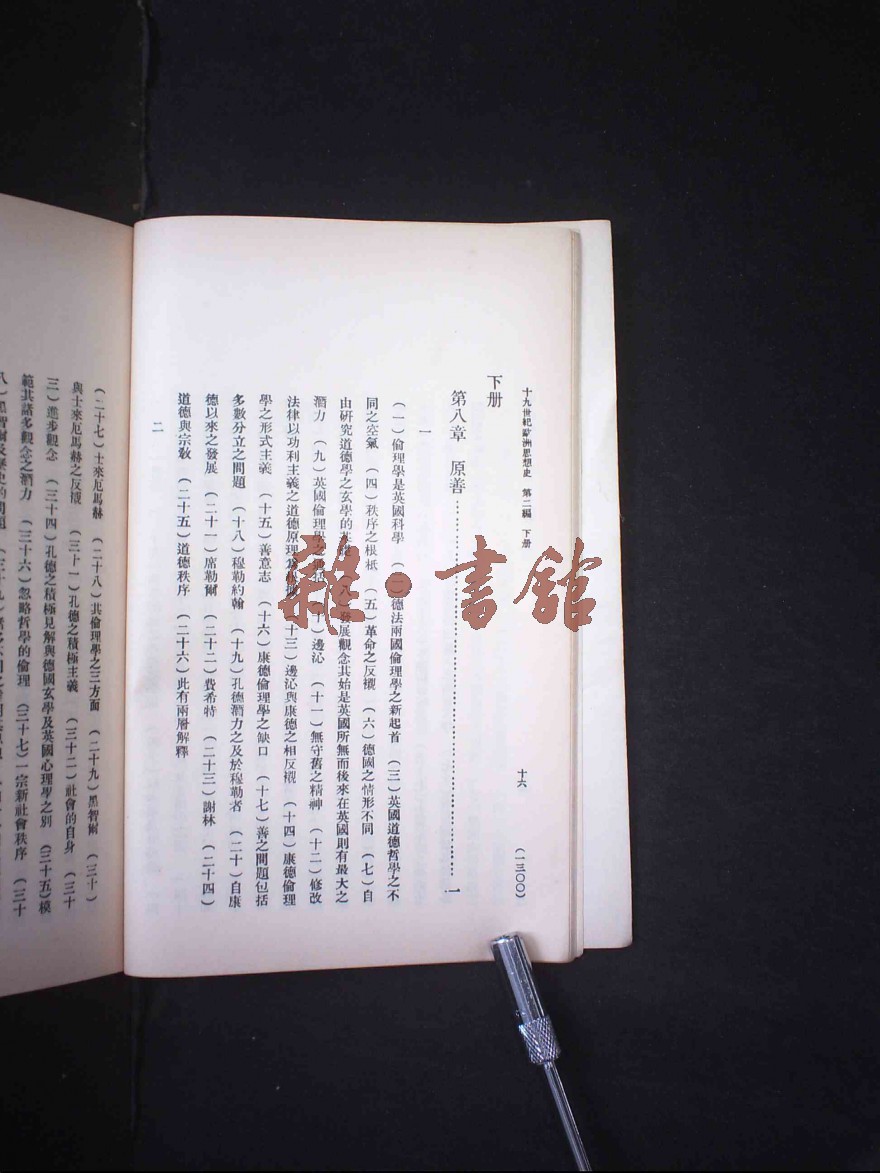 十九世紀歐洲思想史 第二編 下册 十六 (一三〇〇)
下册
第八章 原善…………一
一
(一)倫理學是英國科學 (二)德法兩國倫理學之新起首 (三)英國道德哲學之不
同之空氣 (四)秩序之根柢 (五)革命之反襯 (六)德國之情形不同 (七)自
由研究道德學之玄學的 (八)發展觀念其始是英國所無而後來在英國則有最大之
潛力 (九)英國倫理學之 (十)邊沁 (十一)無守舊之精神 (十二)修改
法律以功利主義之道德原理 (十三)邊沁與康德之相反襯 (十四)康德倫理
學之形式主義 (十五)善意志 (十六)康德倫理學之缺口 (十七)善之問題包括
多數分立之問題 (十八)穆勒約翰 (十九)孔德潛力之及於穆勒者 (二十)自康
德以來之發展 (二十一)席勒爾 (二十二)費希特 (二十三)謝林 (二十四)
道德與宗教 (二十五)道德秩序 (二十六)此有兩層解釋
二
(二十七)士來厄馬赫 (二十八)其倫理學之三方面 (二十九)黑智爾 (三十)
與士來厄馬赫之反襯 (三十一)孔德之積極主義 (三十二)社會的自身 (三十
三)進步觀念 (三十四)孔德之積極見解與德國玄學及英國心理學之別 (三十五)模
範其諸多觀念之潛力 (三十六)忽略哲學的倫理 (三十七)一宗新社會秩序 (三十
八)黑智爾
雜·書館